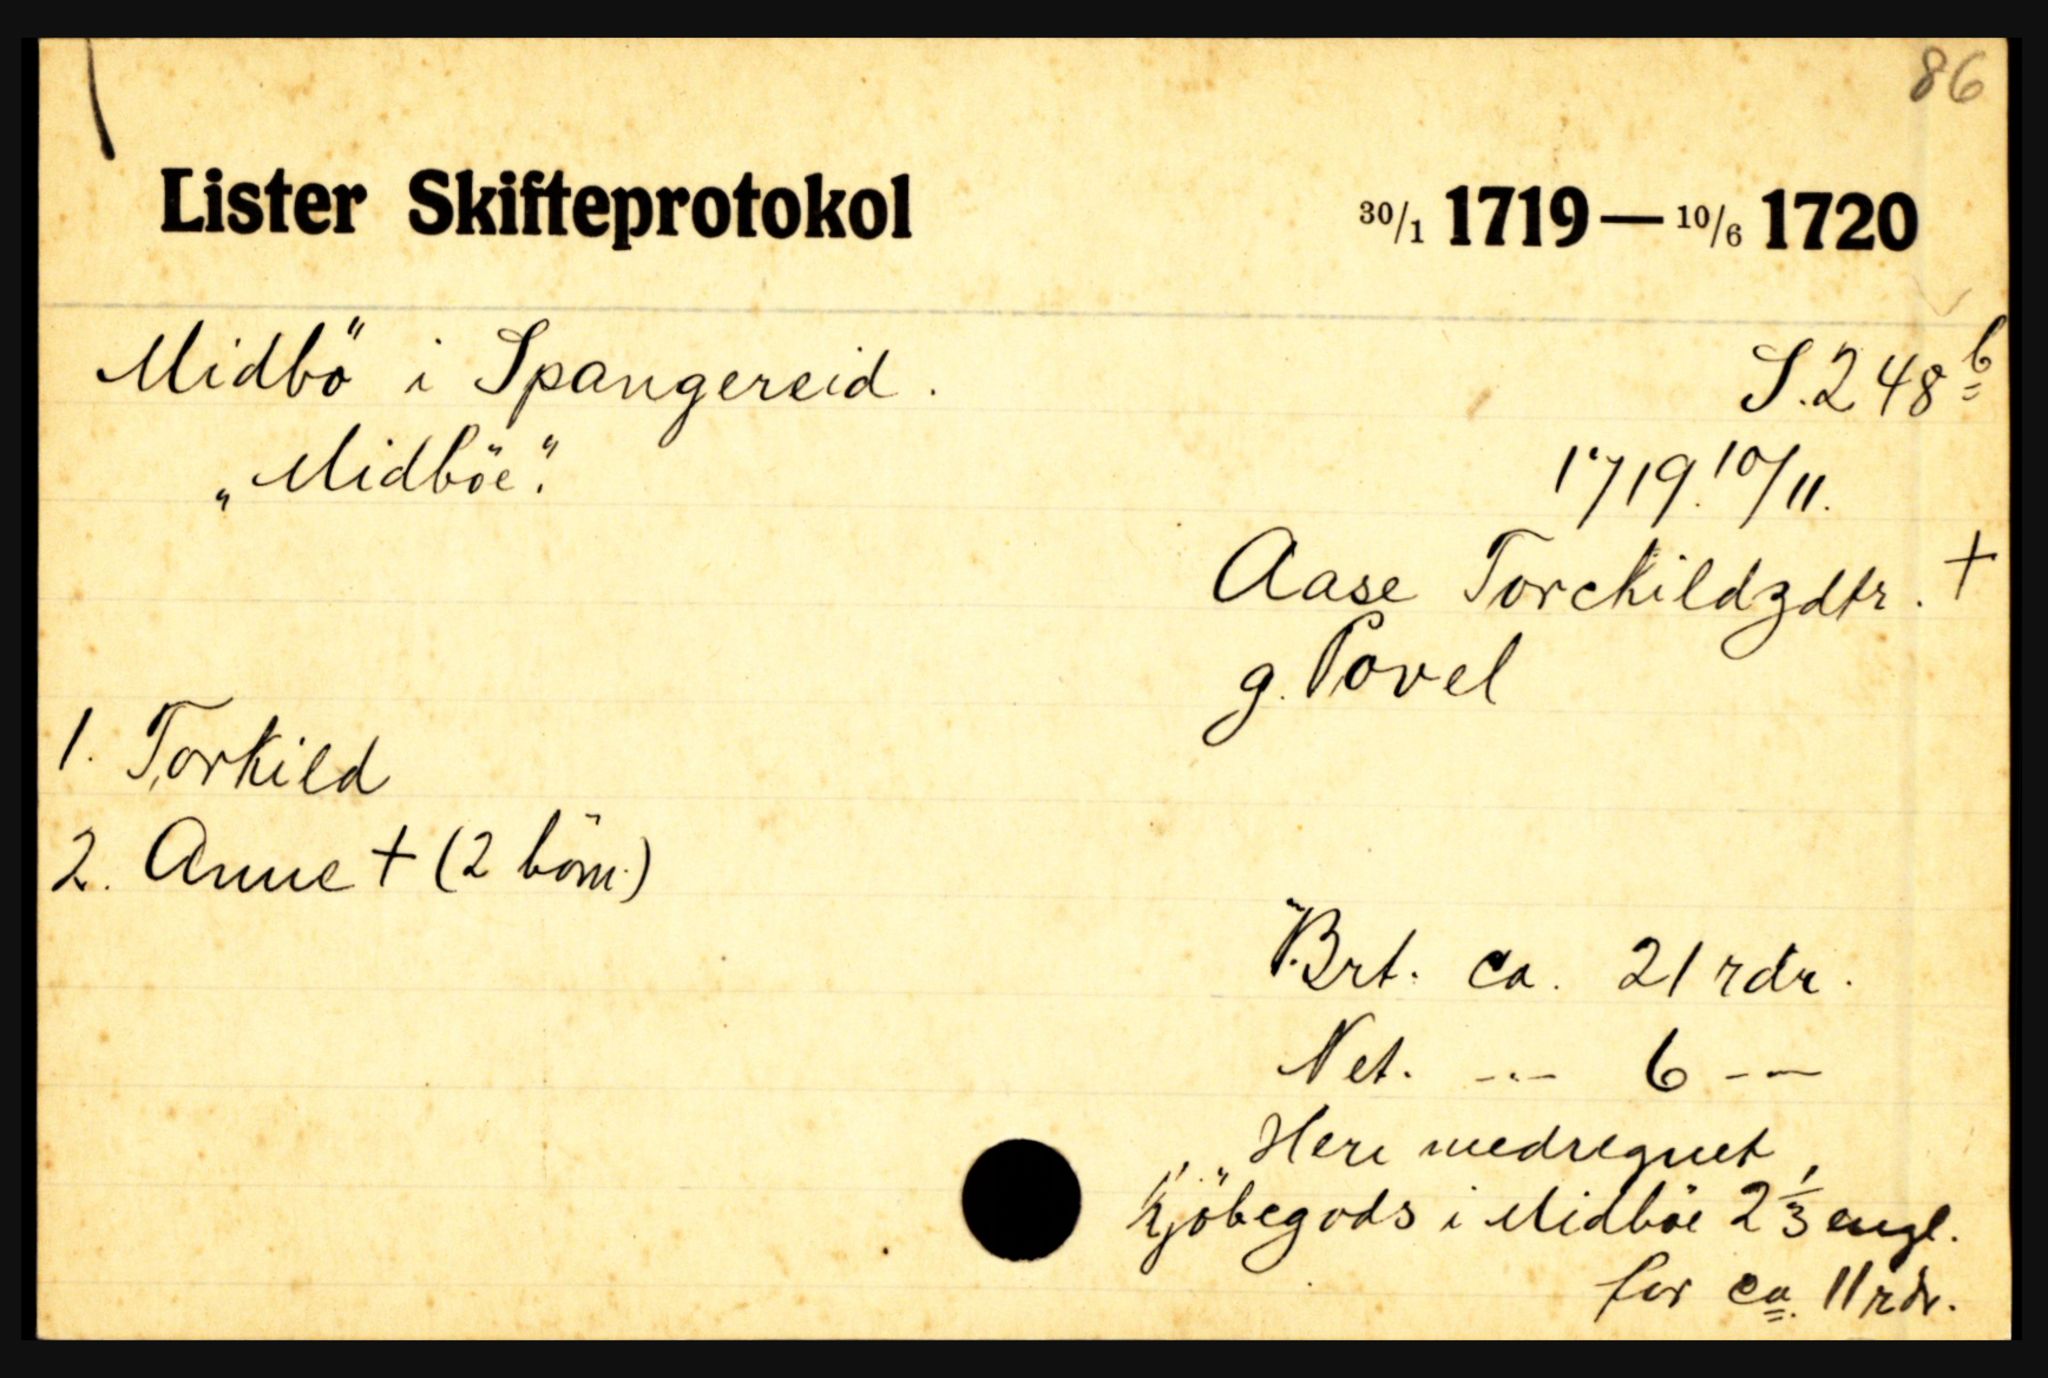 86
Lister Skifteprotokol 30/1 1719 — 10/6 1720
Midbö i Spangereid. S. 248 b
„Midböe“. 1719. 10/11.
Aase Torckildzdtr. +
g. Povel
1. Torkild
2. Anne + (2 börn.)
Brt. ca. 21 rdr.
Net. -..- 6 - -
Heri medregnet
kjöbegods i Midböe 2 1/3 engl.
for ca. 11 rdr.